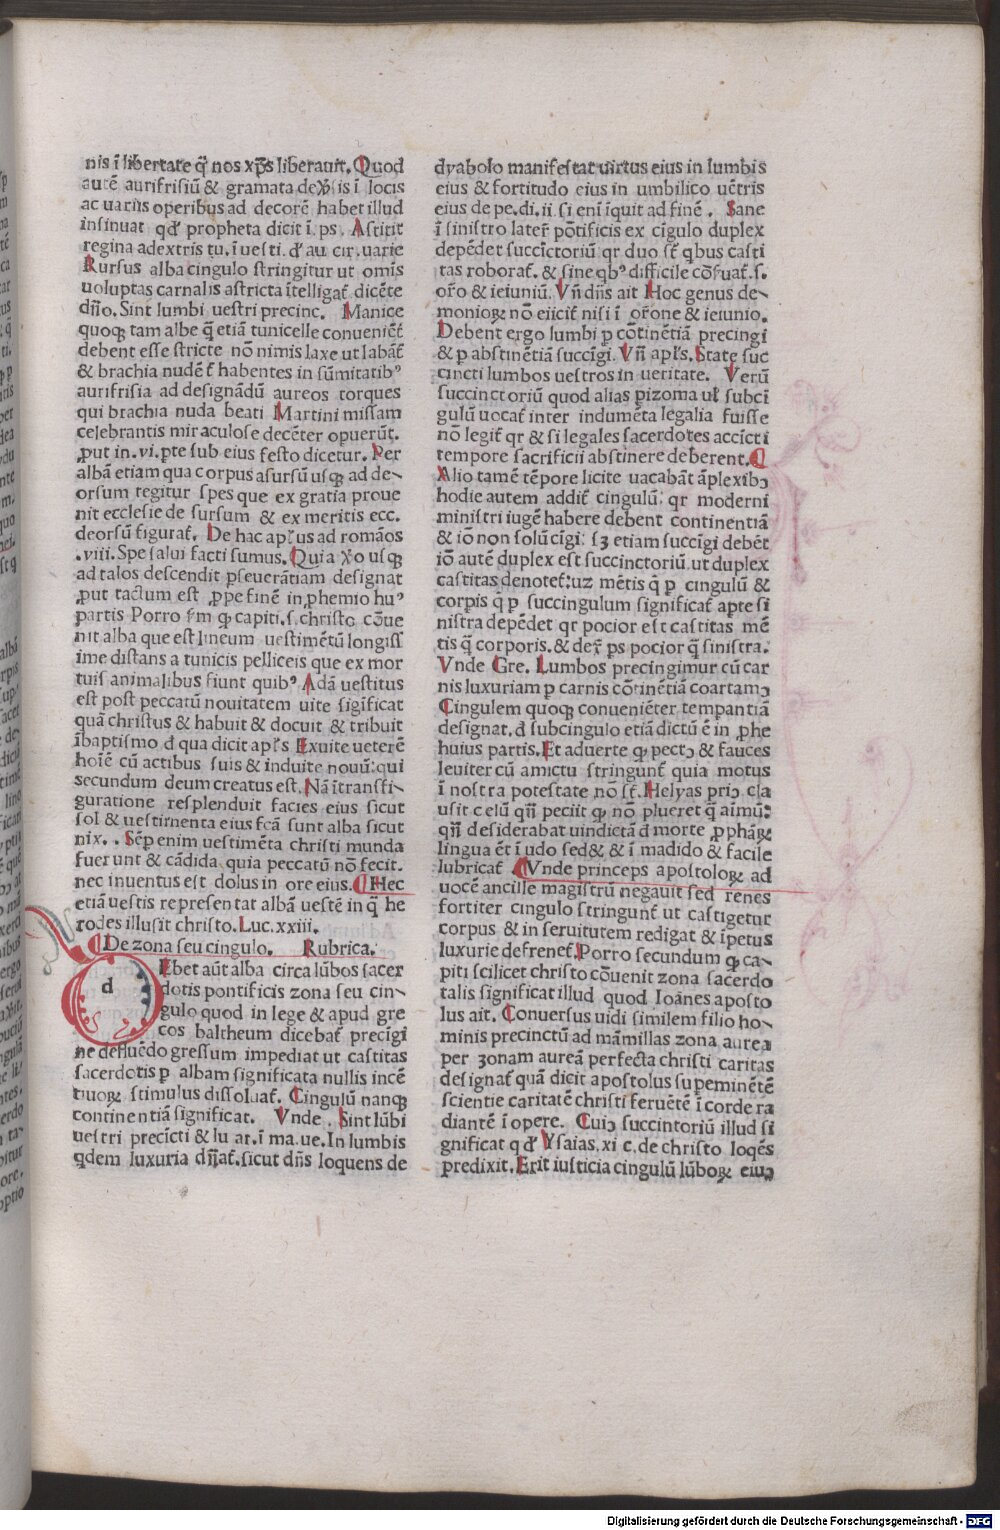 nis ī libertate q̄ nos xp̄s liberauit. Quod
autē aurifrisiū & gramata de x̄sis ī locis
ac uariis operibus ad decorē habet illud
insinuat qd̓ propheta dicit ī. ps. Astitit
regina adextris tu. ī uesti. d̓ au cir. uarie
Rursus alba cingulo stringitur ut omīs
uoluptas carnalis astricta ītelligat̄ dicēte
dn̄o. Sint lumbi uestri precinc. Manice
quoq; tam albe q̄ etiā tunicelle conueniēt̄
debent esse stricte nō nimis laxe ut labāt̄
& brachia nudēt̄ habentes in sūmitatib⁹
aurifrisia ad designādū aureos torques
qui brachia nuda beati Martini missam
celebrantis miraculose decēter opuerūt.
ꝓut in. vi. pte sub eius festo dicetur. Per
albā etiam qua corpus asursū usq; ad de-
orsum tegitur spes que ex gratia proue
nit ecclesie de sursum & ex meritis ecc.
deorsū figurat̄. De hac apl̓us ad romāos
.viii. Spe salui facti sumus. Quia x̓o usq;
ad talos descendit pseuerātiam designat
ꝓut tactum est ꝓpe finē in ꝓhemio hu⁹
partis Porro s̓m ꝙ capiti. s. christo cōue
nit alba que est lineum uestimētū longiss
ime distans a tunicis pelliceis que ex mor
tuis animalibus fiunt quib⁹ Adā uestitus
est post peccatū nouitatem uite sigificat
quā christus & habuit & docuit & tribuit
ībaptismo d̓ qua dicit apl̓s Exuite ueterē
hoīē cū actibus suis & induite nouū: qui
secundum deum creatus est. Nā ītransfi-
guratione resplenduit facies eius sicut
sol & uestimenta eius fcā sunt alba sicut
nix. . Sēp enim uestimēta christi munda
fuerunt & cādida quia peccatū nō fecit.
nec inuentus est dolus in ore eius. ¶ Hec
etiā uestis representat albā uestē in q̄ he
rodes illusit christo. Luc. xxiii.
¶ De zona seu cingulo. Rubrica.
d Ebet aūt alba circa lūbos sacer
dotis pontificis zona seu cin-
gulo quod in lege & apud gre
cos baltheum dicebat̄ precīgi
ne defluēdo gressum impediat ut castitas
sacerdotis p albam significata nullis incē
tiuoꝝ stimulus dissoluat̄. Cingulū nanq;
continentiā significat. Vnde. Sint lūbi
uestri precīcti & lu ar. ī ma. ue. In lumbis
q̄dem luxuria dn̄at̄. sicut dn̄s loquens de
dyabolo manifestat uirtus eius in lumbis
eius & fortitudo eius in umbilico uētris
eius de pe. di. ii. si enī īquit ad finē. Sane
ī sinistro later̄ pōtificis ex cīgulo duplex
depēdet succīctoriū qr duo st̄ qbus casti
tas roborat̄. & sine qb⁹ difficile cōs̓uat̄. s.
or̄o & ieiuniū. Vn̄ dn̄s ait Hoc genus de-
monioꝝ nō eiicit̄ nisi ī or̄one & ieiunio.
Debent ergo lumbi p cōtinētiā precingi
& p abstinētiā succīgi. Vn̄ apl̓s. State suc
cincti lumbos uestros in ueritate. Verū
succinctoriū quod alias pizoma ul̓ subcī
gulū uocat̄ inter indumēta legalia fuisse
nō legit̄ qr & si legales sacerdotes accīcti
tempore sacrificii abstinere deberent. ¶
Alio tamē tēpore licite uacabāt āplexibꝫ
hodie autem addit̄ cingulū: qr moderni
ministri iugē habere debent continentiā
& iō non solū cīgi: sꝫ etiam succīgi debēt
iō autē duplex est succinctoriū. ut duplex
castitas denotet̄: uz mētis q̄ p cingulū &
corpis q̄ p succingulum significat̄ apte si
nistra depēdet qr pocior est castitas mē
tis q̄ corporis. & dex̄ ps pocior q̄ sinistra.
Vnde Gre. Lumbos precingimur cū car
nis luxuriam p carnis cōtinētiā coartamꝰ
Cingulem quoq; conueniēter tempantiā
designat. d̓ subcingulo etiā dictū ē in ꝓhe
huius partis. Et aduerte ꝙ pectꝰ & fauces
leuiter cū amictu stringunt̄ quia motus
ī nostra potestate nō st̄. Helyas priꝰ cla
usit celū qn̄ peciit ꝙ nō plueret q̄ aīmū:
qn̄ desiderabat uindictā d̓ morte ꝓphāꝝ
lingua ēt ī udo sed& & ī madido & facile
lubricat̄ ¶ Vnde princeps apostoloꝝ ad
uocē ancille magistrū negauit sed renes
fortiter cingulo stringunt̄ ut castigetur
corpus & in seruitutem redigat & īpetus
luxurie defrenet̄. Porro secundum ꝙ ca-
piti scilicet christo cōuenit zona sacerdo
talis significat illud quod Ioānes aposto
lus ait. Conuersus uidi similem filio ho-
minis precinctū ad māmillas zona aurea
per zonam aureā perfecta christi caritas
designat̄ quā dicit apostolus supeminētē
scientie caritatē christi feruētē ī corde ra
diantē ī opere. Cuiꝰ succintoriū illud si
gnificat q d̓ Ysaias. xi c. de christo loqēs
predixit. Erit iusticia cingulū lūboꝝ eiuꝰ
Digitalisierung gefördert durch die Deutsche Forschungsgemeinschaft - DFG